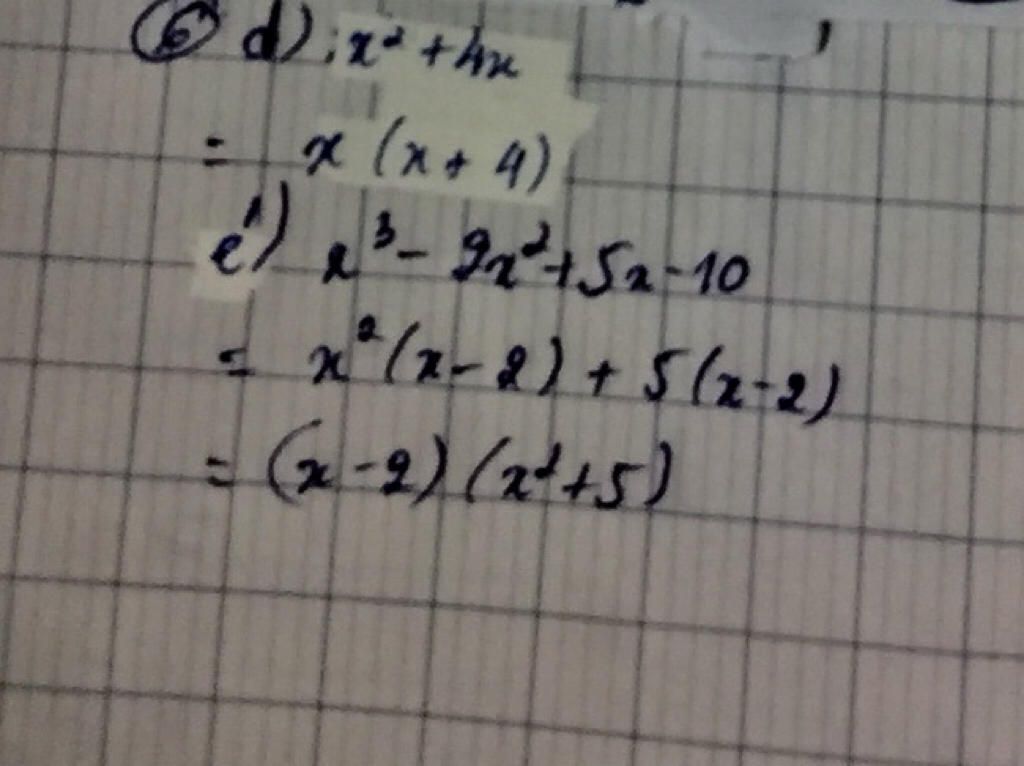 ⑥ d) : x² + 4x
= x (x + 4)
e) x³ - 2x² + 5x - 10
= x² (x - 2) + 5 (x - 2)
= (x - 2) (x² + 5)